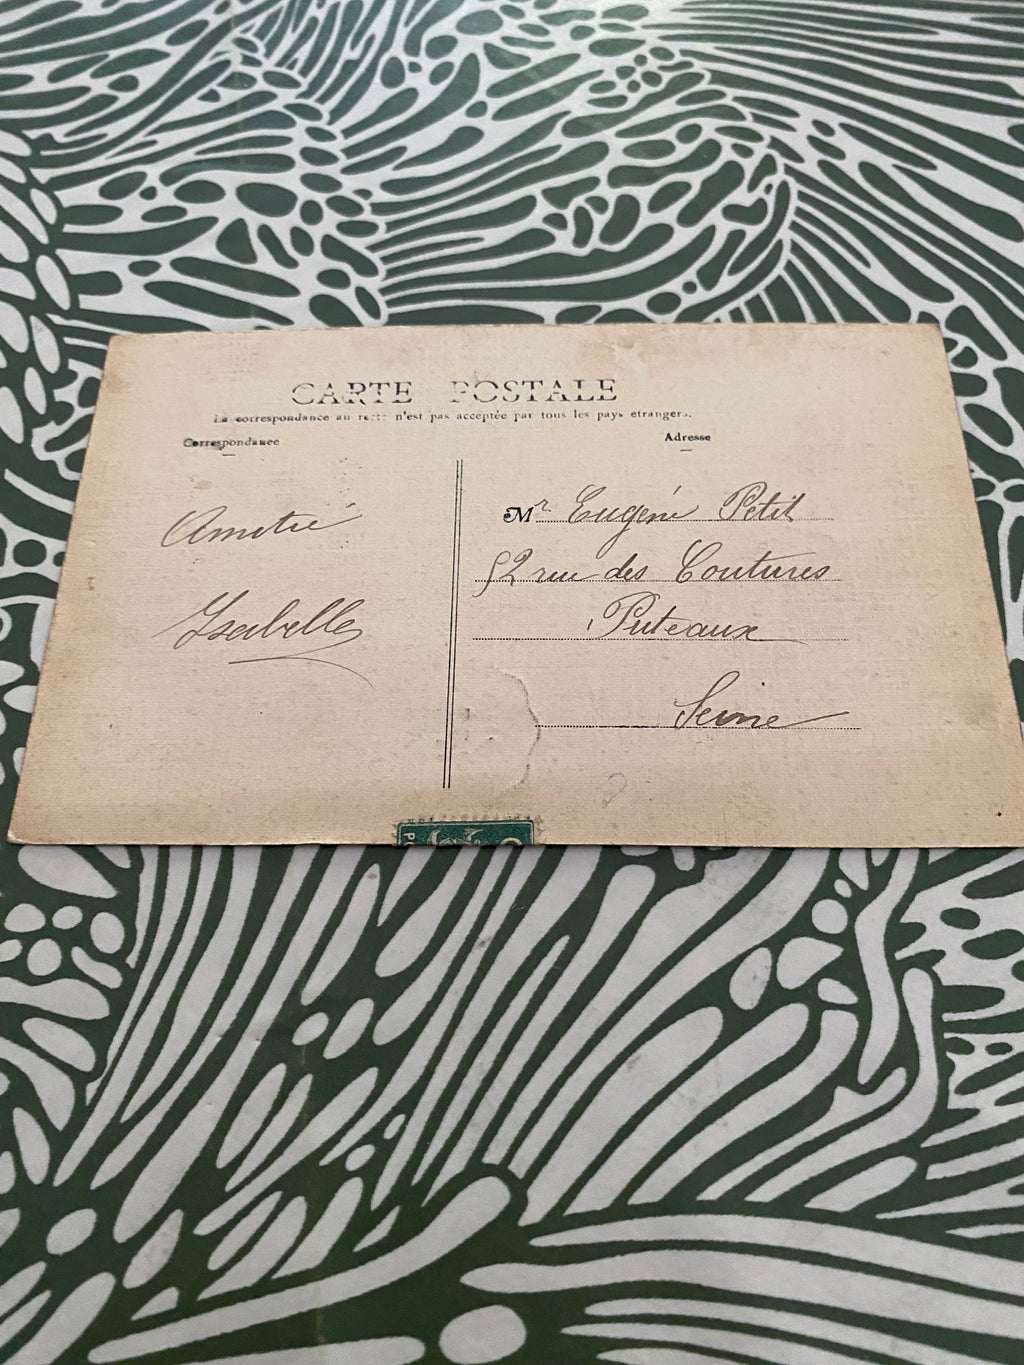 CARTE POSTALE
La correspondance au recto n'est pas acceptée par tous les pays etrangers.
Correspondance
Adresse
Amitié
Isabelle
Mr Eugéne Petit
52 rue des Coutures
Puteaux
Seine